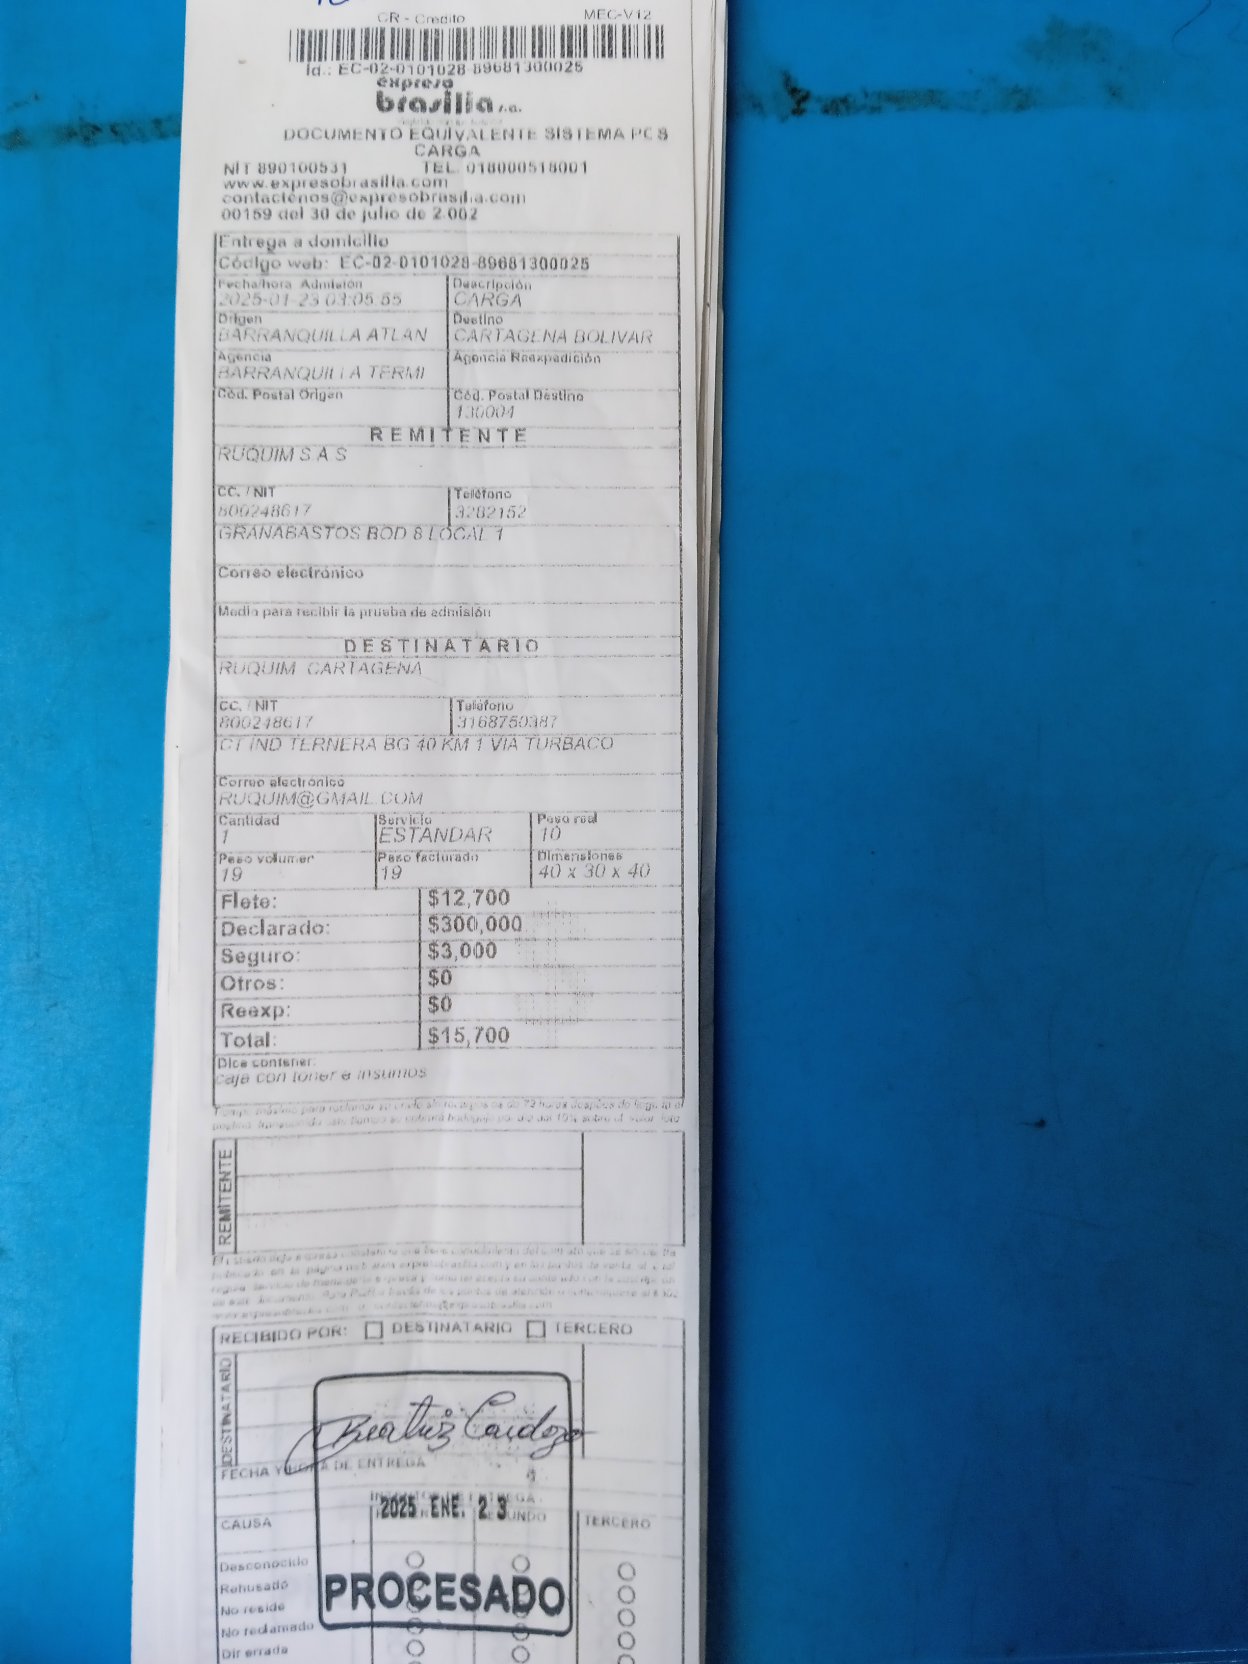 CR - Credito MEC-V12
Id.: EC-02-0101028-89681300025
expreso
brasilia s.a.
DOCUMENTO EQUIVALENTE SISTEMA POS
CARGA
NIT 890100531 TEL. 018000518001
www.expresobrasilia.com
contactenos@expresobrasilia.com
00159 del 30 de julio de 2.002
Entrega a domicilio
Código web: EC-02-0101028-89681300025
Fecha/hora Admisión Descripción
2025-01-23 03:05:55 CARGA
Origen Destino
BARRANQUILLA ATLAN CARTAGENA BOLIVAR
Agencia Agencia Reexpedición
BARRANQUILLA TERMI
Cód. Postal Origen Cód. Postal Destino
130004
REMITENTE
RUQUIM S A S
CC. / NIT Teléfono
800248617 3282152
GRANABASTOS BOD 8 LOCAL 1
Correo electrónico
Medio para recibir la prueba de admisión
DESTINATARIO
RUQUIM CARTAGENA
CC. / NIT Teléfono
800248617 3168750387
CT IND TERNERA BG 40 KM 1 VIA TURBACO
Correo electrónico
RUQUIM@GMAIL.COM
Cantidad Servicio Peso real
1 ESTANDAR 10
Peso volumer Peso facturado Dimensiones
19 19 40 x 30 x 40
Flete: $12,700
Declarado: $300,000
Seguro: $3,000
Otros: $0
Reexp: $0
Total: $15,700
Dice contener:
caja con toner e insumos
REMITENTE
RECIBIDO POR: DESTINATARIO TERCERO
DESTINATARIO
Beatriz Cardozo
FECHA Y HORA DE ENTREGA
2025 ENE. 23
CAUSA TERCERO
Desconocido
Rehusado
PROCESADO
No reside
No reclamado
Dir errada